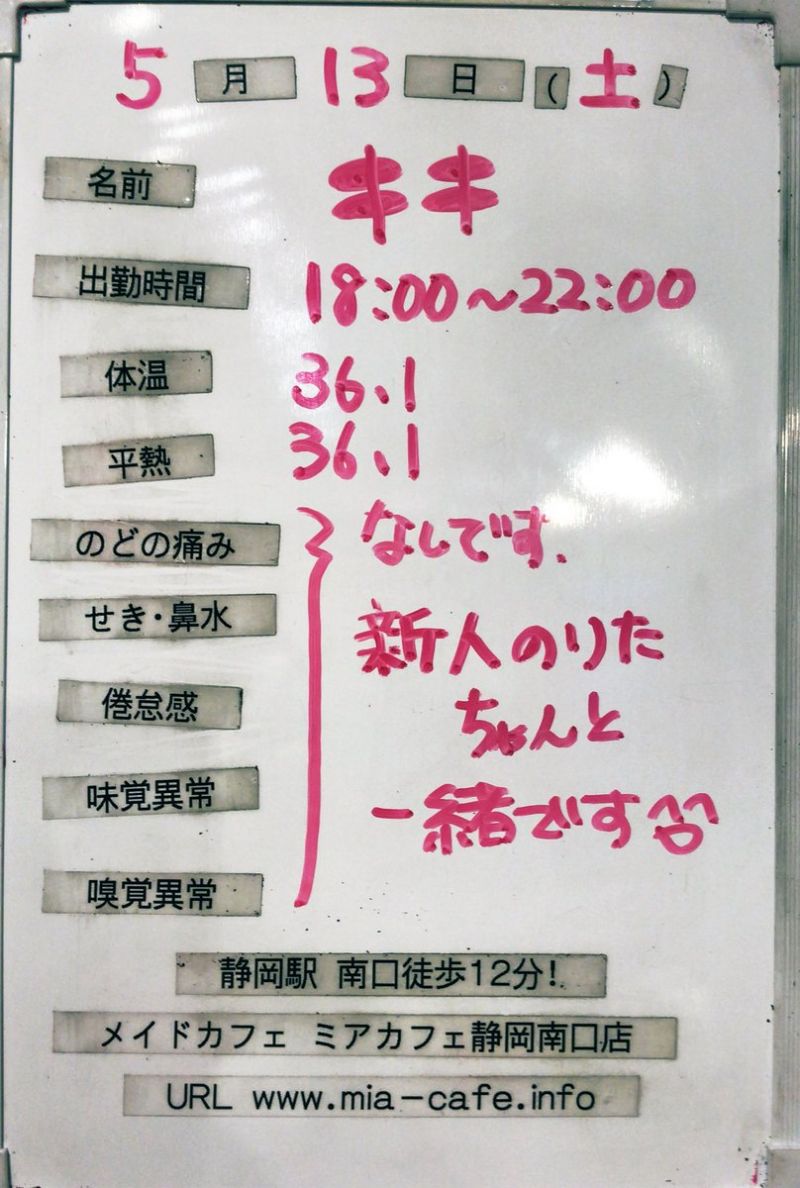 5月13日(土)
名前 キキ
出勤時間 18:00~22:00
体温 36.1
平熱 36.1
のどの痛み なしです.
せき・鼻水
新人のりた
倦怠感
ちゃんと
味覚異常
一緒です
嗅覚異常
静岡駅 南口徒歩12分!
メイドカフェ ミアカフェ静岡南口店
URL www.mia-cafe.info